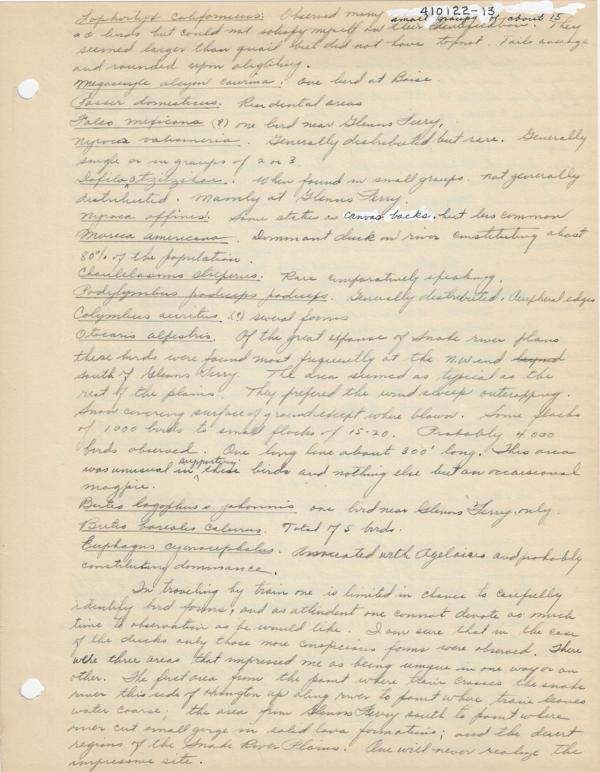 410122-13
Lophortyx californicus: Observed many small groups of about 15
20 birds but could not satisfy myself on their identification. They
seemed larger than quail but did not have topnot. Tails average
and rounded upon alighting.
Megaceryle alcyon caurina: One bird at Boise.
Passer domesticus. Residental areas
Falco mexicana (?) one bird near Glenns Ferry.
Nyroca valisineria. Generally distributed but rare. Generally
single or in groups of 2 or 3
Dafila a. tzitzihoa. When found in small groups. not generally
distributed. Mainly at Glenns Ferry.
Nyroca affinis: Same status as canvas backs, but less common
Mareca americana. Dominant duck on river constituting about
80% of the population.
Chaulelasmus streperus. Rare comparatively speaking.
Podylymbus podiceps podiceps. Generally distributed. Peripheral edges
Colymbus auritus (?) several forms
Otocoris alpestris. Of the great expanse of Snake river plains
these birds were found most frequently at the N.W. end
south of Glenns Ferry. The area seemed as typical as the
rest of the plains. They prefered the wind swept outcropping.
Snow covering surface of ground except where blown. Some flocks
of 1000 birds to small flocks of 15-20. Probably 4,000
birds observed. One long line about 300' long. This area
was unusual in supporting these birds and nothing else but an occaisional
magpie.
Buteo lagophus s. johannis one bird near Glenns Ferry only.
Buteo borealis calurus. Total of 5 birds.
Euphagus cyanocephalus. Associated with Agelaius and probably
constituting dominance.
In traveling by train one is limited in chance to carefully
identify bird forms, and as attendent one cannot devote as much
time to observation as he would like. I am sure that in the case
of the ducks only those more conspicious forms were observed. There
were three areas that impressed me as being unique in one way or an
other. The first area from the point where train crosses the snake
river this side of Huntington up along river to point where train leaves
water coarse; the area from Glenns Ferry south to point where
river cut small gorge in solid lava formations; and the desert
regions of the Snake River Plains. One will never realize the
impressive site.